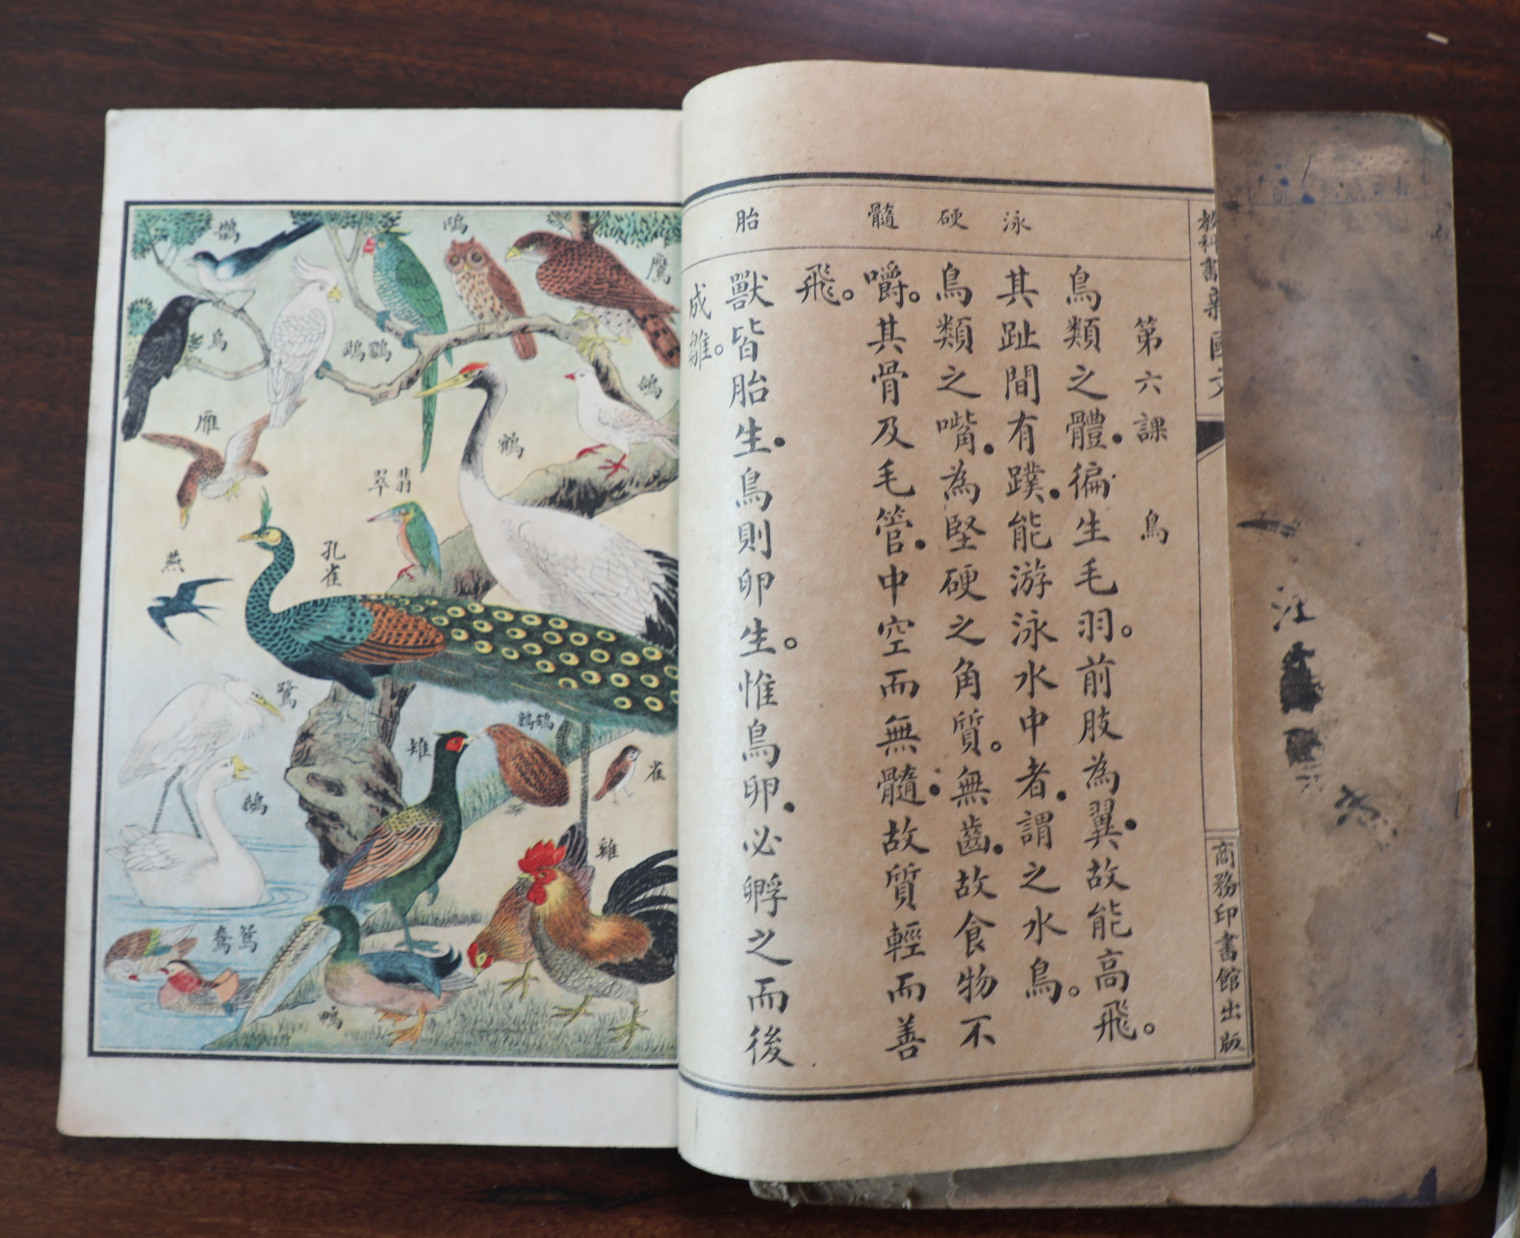 第六課 鳥
鳥類之體.徧生毛羽。前肢為翼.故能高飛。
其趾間有蹼.能游泳水中者.謂之水鳥。
鳥類之嘴.為堅硬之角質。無齒.故食物不
嚼。其骨及毛管.中空而無髓.故質輕而善
飛。
獸皆胎生.鳥則卵生。惟鳥卵.必孵之而後
成雛。
泳
硬
髓
胎
教科書 新國文
商務印書館出版
鵲
鴟
鷹
烏
鸚鵡
鴿
雁
鶴
翡翠
孔雀
燕
鷺
雉
鵪鶉
雀
鵝
雞
鴛鴦
鴨